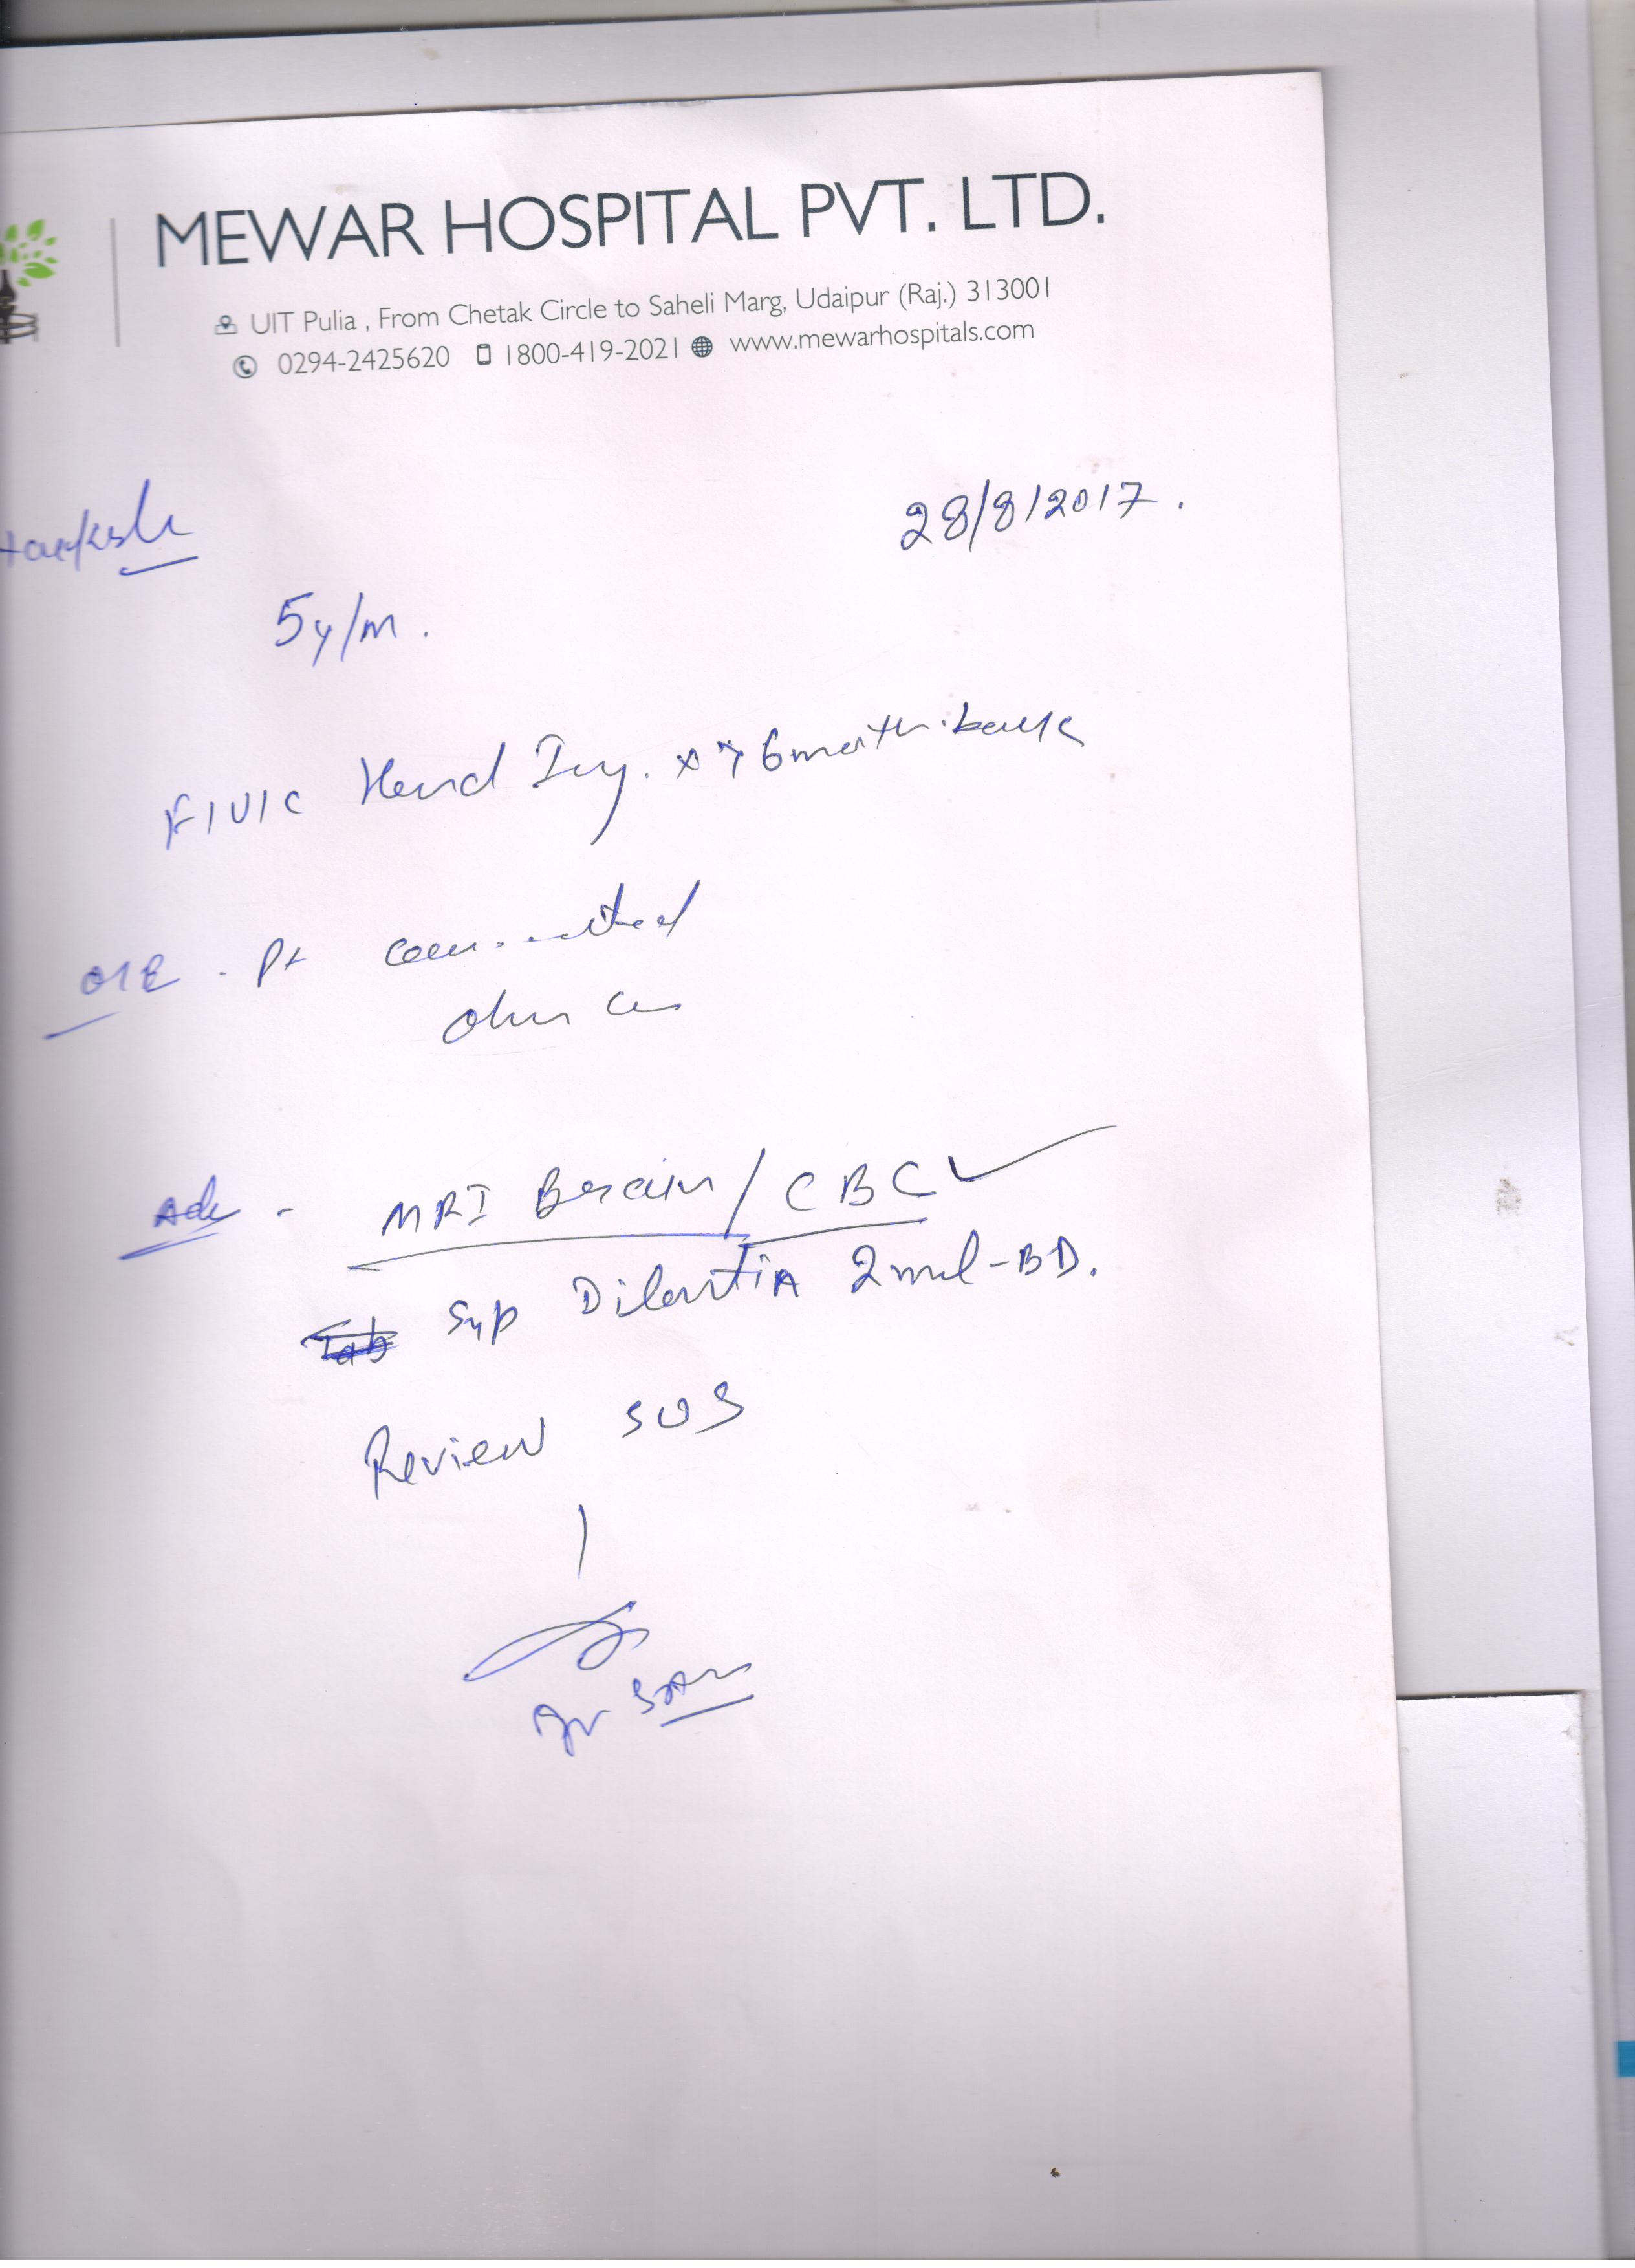 MEWAR HOSPITAL PVT. LTD.
UIT Pulia , From Chetak Circle to Saheli Marg, Udaipur (Raj.) 313001
0294-2425620 1800-419-2021 www.mewarhospitals.com
28/8/2017.
5y/m.
F/U/C Head Inj. 6 month back
O/E . Pt
Adv - MRI Brain / CBC
Syp Dilantin 2ml-BD.
Review SOS
Dr